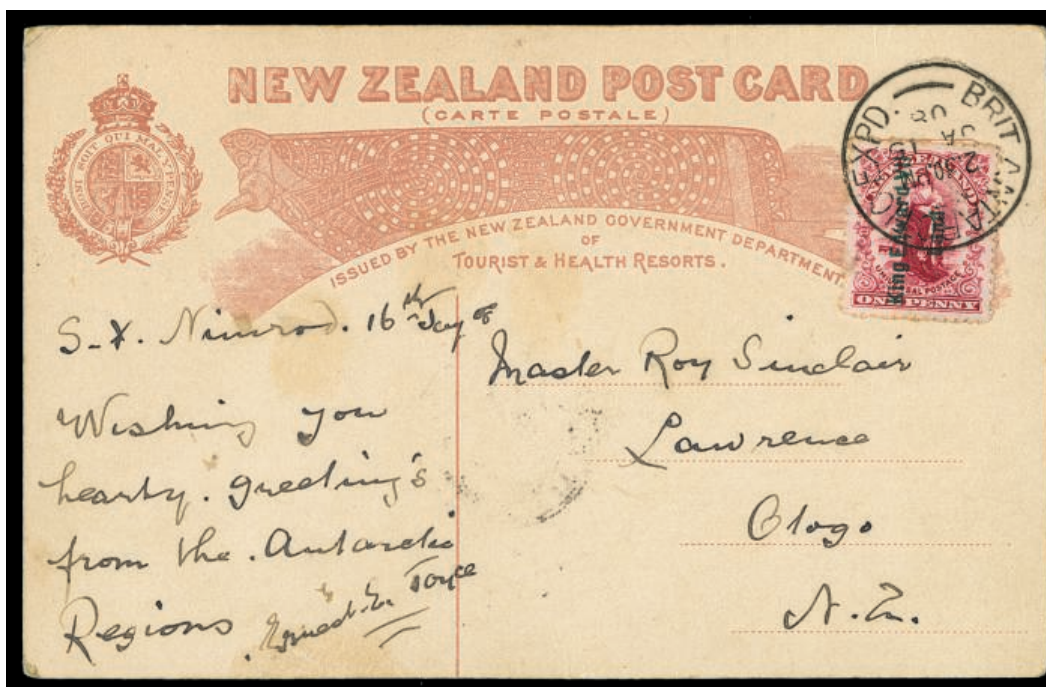 NEW ZEALAND POST CARD
(CARTE POSTALE)
HONI SOIT QUI MAL Y PENSE
ISSUED BY THE NEW ZEALAND GOVERNMENT DEPARTMENT
OF
TOURIST & HEALTH RESORTS.
BRIT. ANTARCTIC EXPD.
JA
08
King Edward VII
Land
UNIVERSAL POSTAGE
ONE PENNY
S.Y. Nimrod. 16th Jay 08
Wishing you
hearty. greeting's
from the. Antarctic
Regions
Ernest. E. Joyce
Master Roy Sinclair
Lawrence
Otago
N.Z.